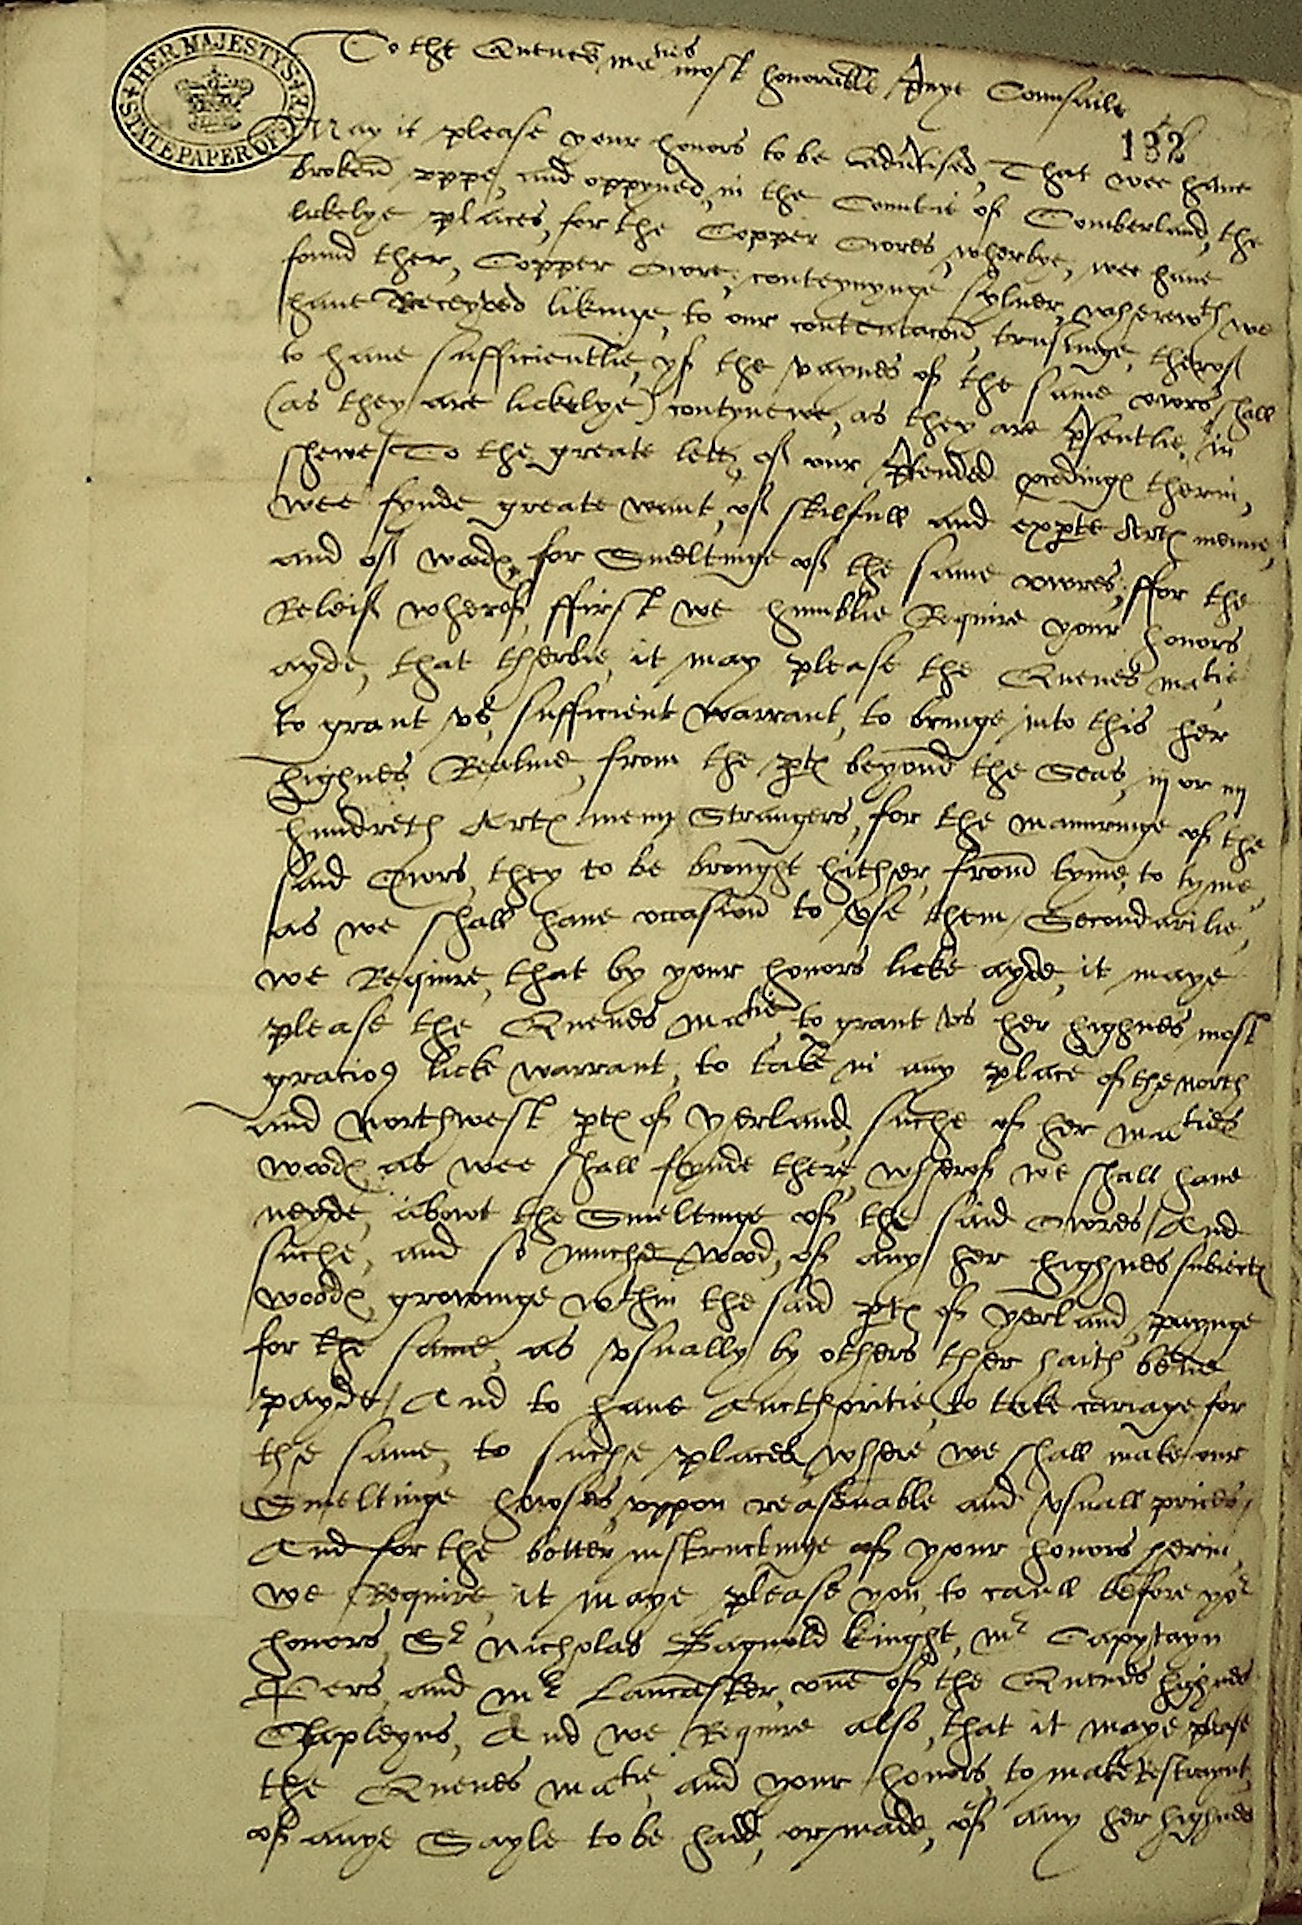 HER MAJESTY'S STATE PAPER OFFICE
To the Quenes ma ties most honorable Pryve Counsaile
132
May it please your honors to be adutised, That wee haue
broken vppe, and oppyned, in the Countie of Comberland, the
lickelye places, for the Copper Owres, wherbye, wee haue
found ther, Copper Owre, conteynynge sylver, wherewth we
haue Receyved likinge, to our contentacon, trustinge, therof
to haue sufficientlie, yf the vaynes of the same owrs, shall
(as they are lickelye) contynewe, as they are psentlie, in
shewe / To the greate lett, of our ptended pcedinges therin,
wee fynde greate want, of skilfull and experte Artes menne,
and of woodes, for Smeltinge of the same owres, ffor the
Releif wherof, ffirst we humblie Require your honors
ayde, that therbie, it may please the Quenes matie
to grant vs, sufficient warrant, to bringe into this her
highnes Realme, from the ptes beyond the Seas, iij or iiij
hundreth Artes menn Strangers, for the manuringe of the
said Owrs, they to be brought hither, from tyme, to tyme,
as we shall haue occasion to vse them / Secondarilie,
we Require, that by your honors licke ayde, it maye
please the Quenes matie, to grant vs her highnes most
gracious licke warrant, to take in any place of the north
and northwest ptes of yerland, suche of her maties
woodes, as wee shall fynde there, wherof we shall haue
neyde, abowt the Smeltinge of the said Owres / And
suche, and so muche wood, of any her highnes subiectes
woodes, growinge wthin the said ptes of yerland, payinge
for the same, as vsually by others ther haith bene
payde / And to haue Aucthoritie, to take cariage for
the same, to suche places, where we shall make our
Smeltinge howses, vppon reasonable and vsuall prices /
And for the better instructinge of your honors herin,
we Require, it maye please you, to caull before yor
honors, Sr Nicholas Bagnold knight, mr Capytayn
Peers, and mr Lancaster, one of the Quenes highnes
Chapleyns, And we Require also, that it maye please
the Quenes matie, and your honors, to make Restraynt,
of anye Sayle to be hadd, or made, of any her highnes